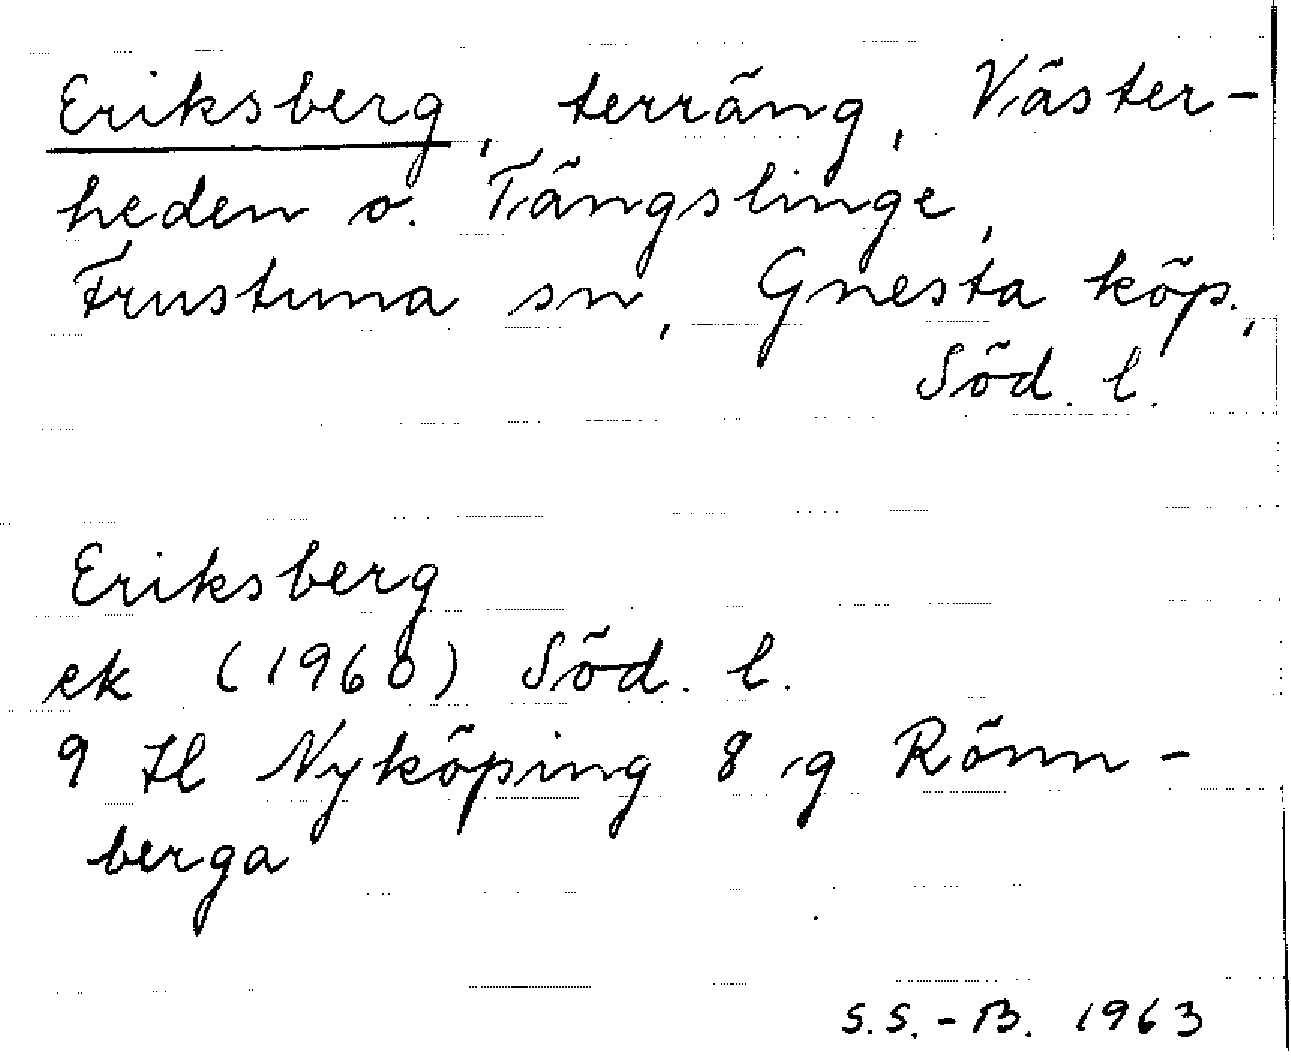 Eriksberg, terräng, Väster-
heden o. Tängslinge,
Frustuna sn, Gnesta köp.,
Söd. l.
Eriksberg
ek (1960) Söd. l.
9 H Nyköping 8 g Rönn-
berga
S.S.-B. 1963